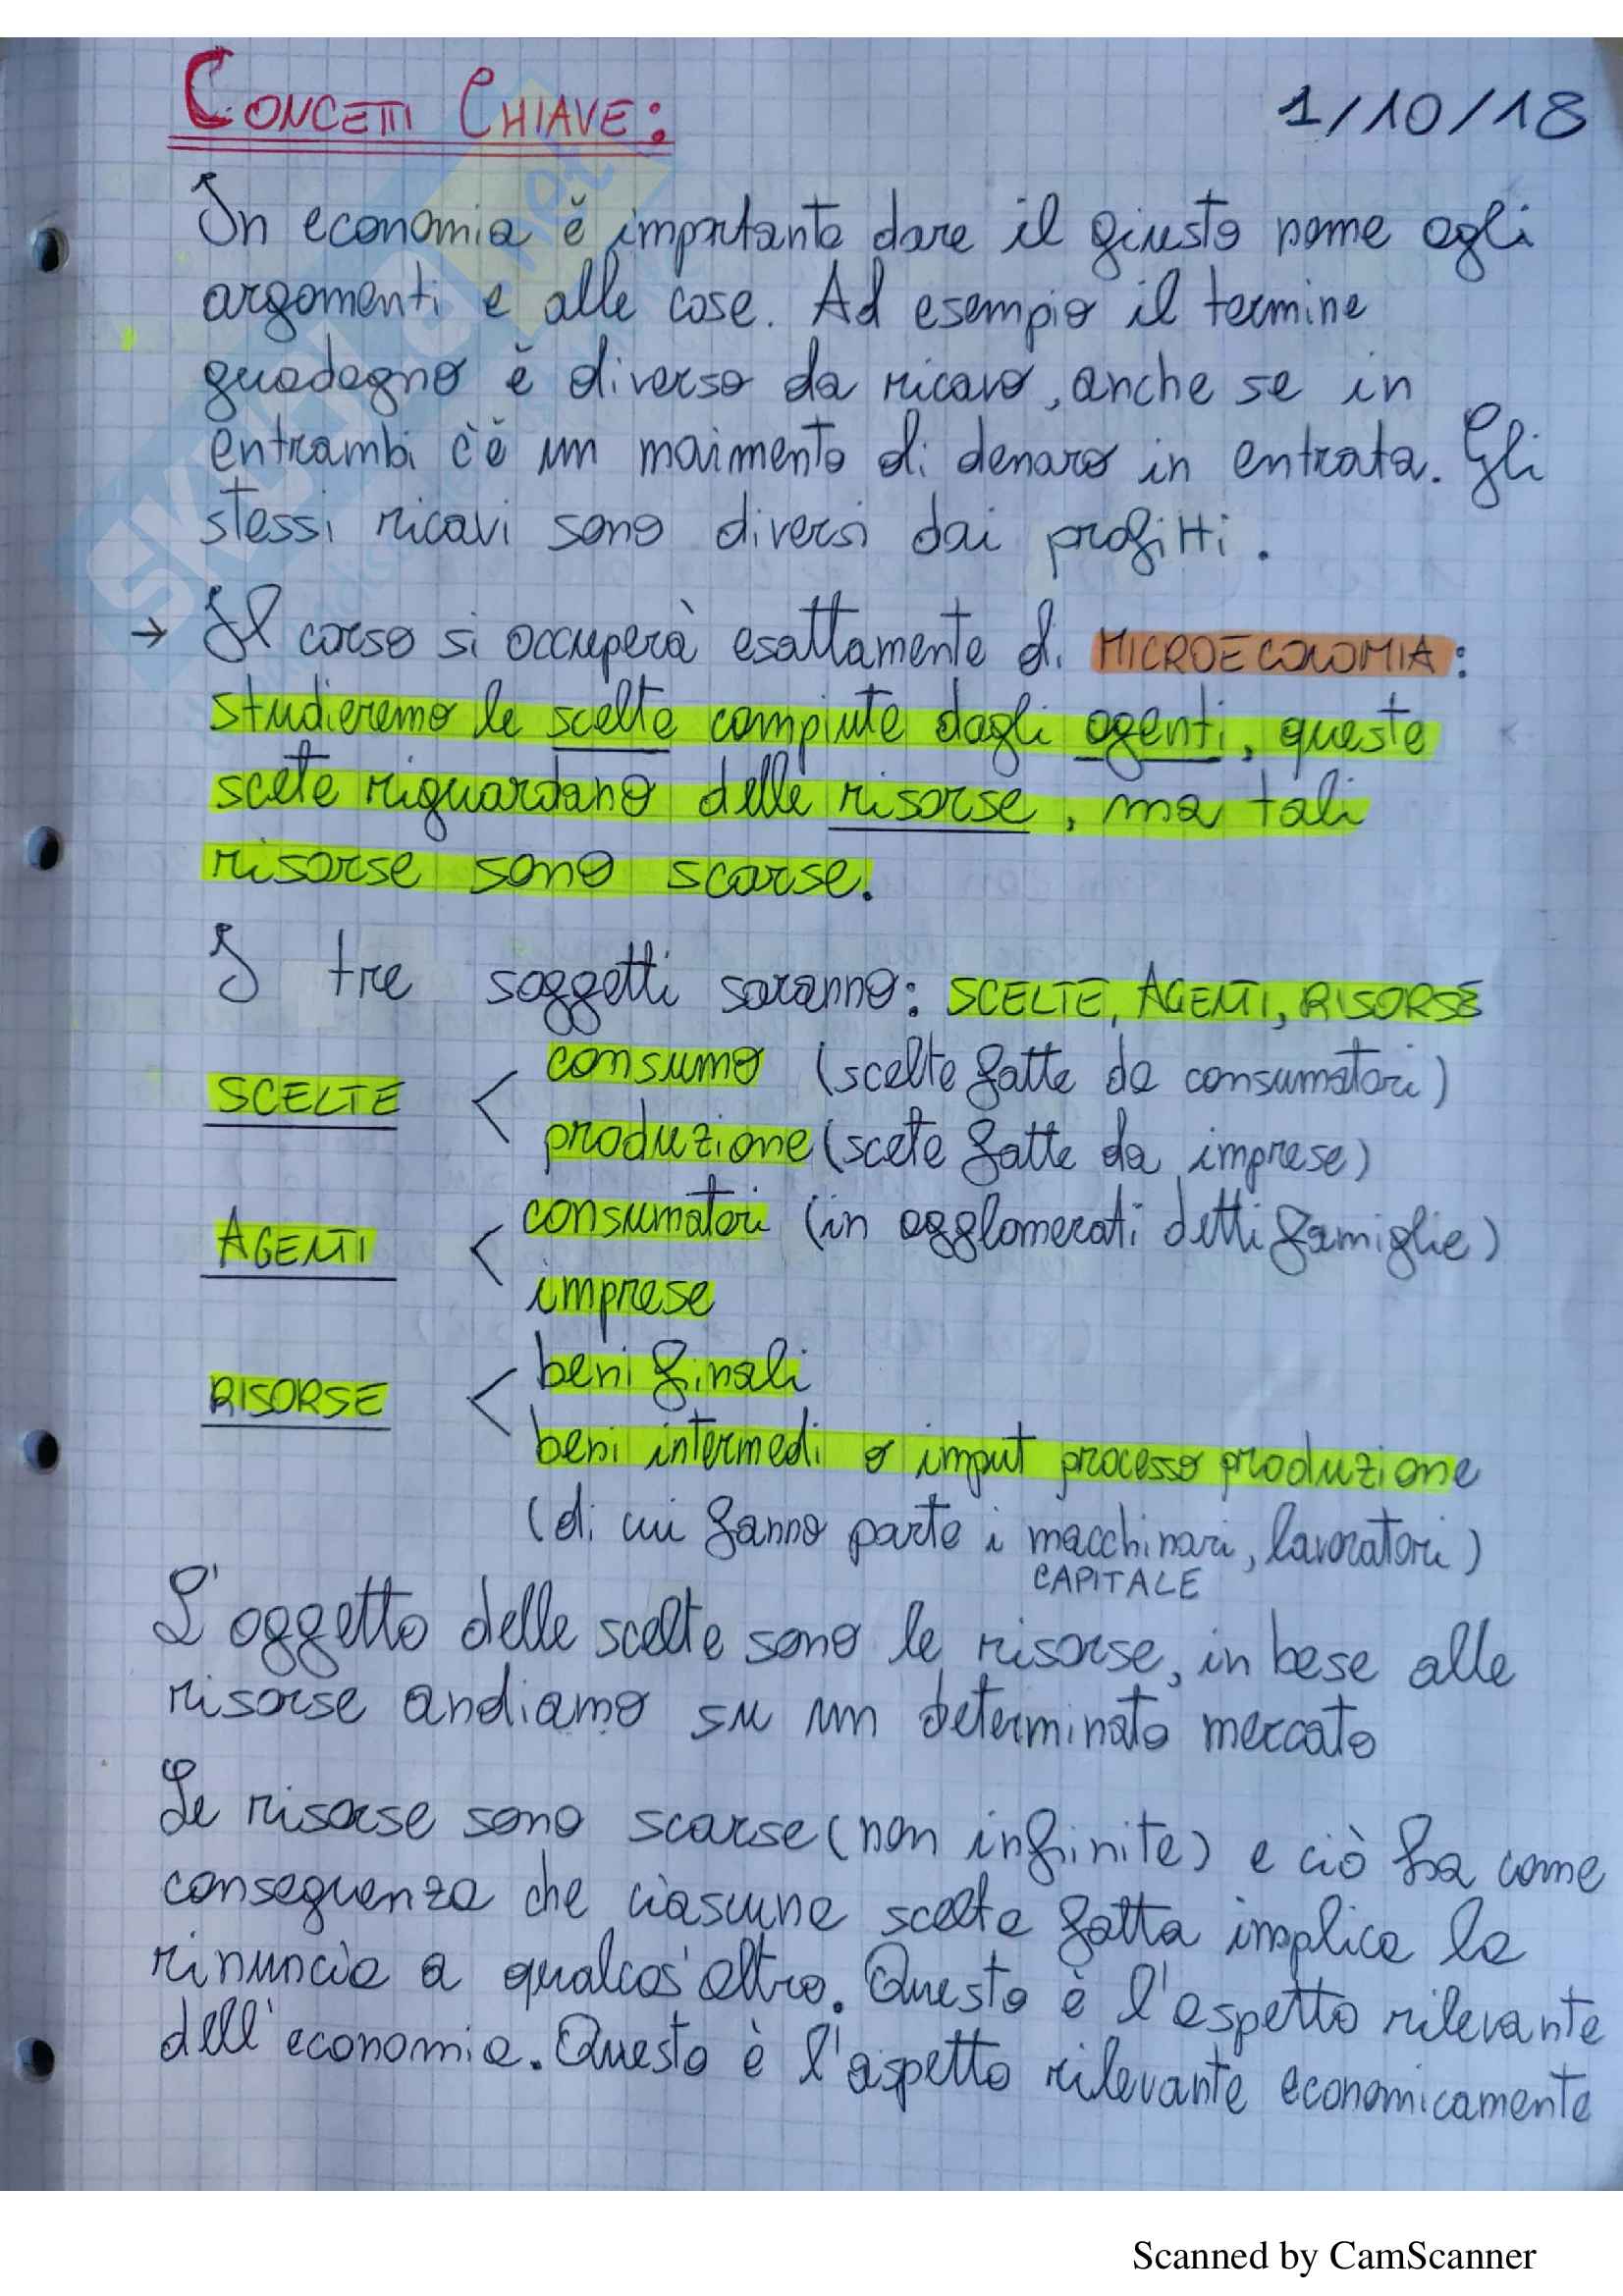 CONCETTI CHIAVE:
1/10/18
In economia è importante dare il giusto nome agli
argomenti e alle cose. Ad esempio il termine
guadagno è diverso da ricavo, anche se in
entrambi c'è un movimento di denaro in entrata. Gli
stessi ricavi sono diversi dai profitti.
→ Il corso si occuperà esattamente di MICROECONOMIA:
studieremo le scelte compiute dagli agenti, queste
scelte riguardano delle risorse, ma tali
risorse sono scarse.
I tre soggetti saranno: SCELTE, AGENTI, RISORSE
SCELTE < consumo (scelte fatte da consumatori)
produzione (scelte fatte da imprese)
AGENTI < consumatori (in agglomerati detti famiglie)
imprese
RISORSE < beni finali
beni intermedi o imput processo produzione
(di cui fanno parte i macchinari, lavoratori)
CAPITALE
L'oggetto delle scelte sono le risorse, in base alle
risorse andiamo su un determinato mercato
Le risorse sono scarse (non infinite) e ciò ha come
conseguenza che ciascuna scelta fatta implica la
rinuncia a qualcos'altro. Questo è l'aspetto rilevante
dell'economia. Questo è l'aspetto rilevante economicamente
Scanned by CamScanner